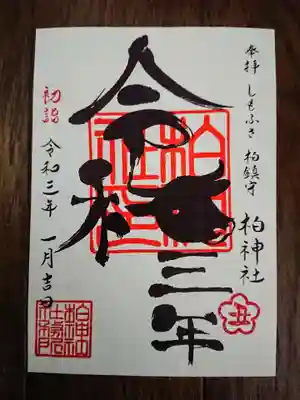 奉拝 しもふさ 柏鎮守
柏神社
令和三年
初詣
令和三年 一月吉日
丑
柏神社